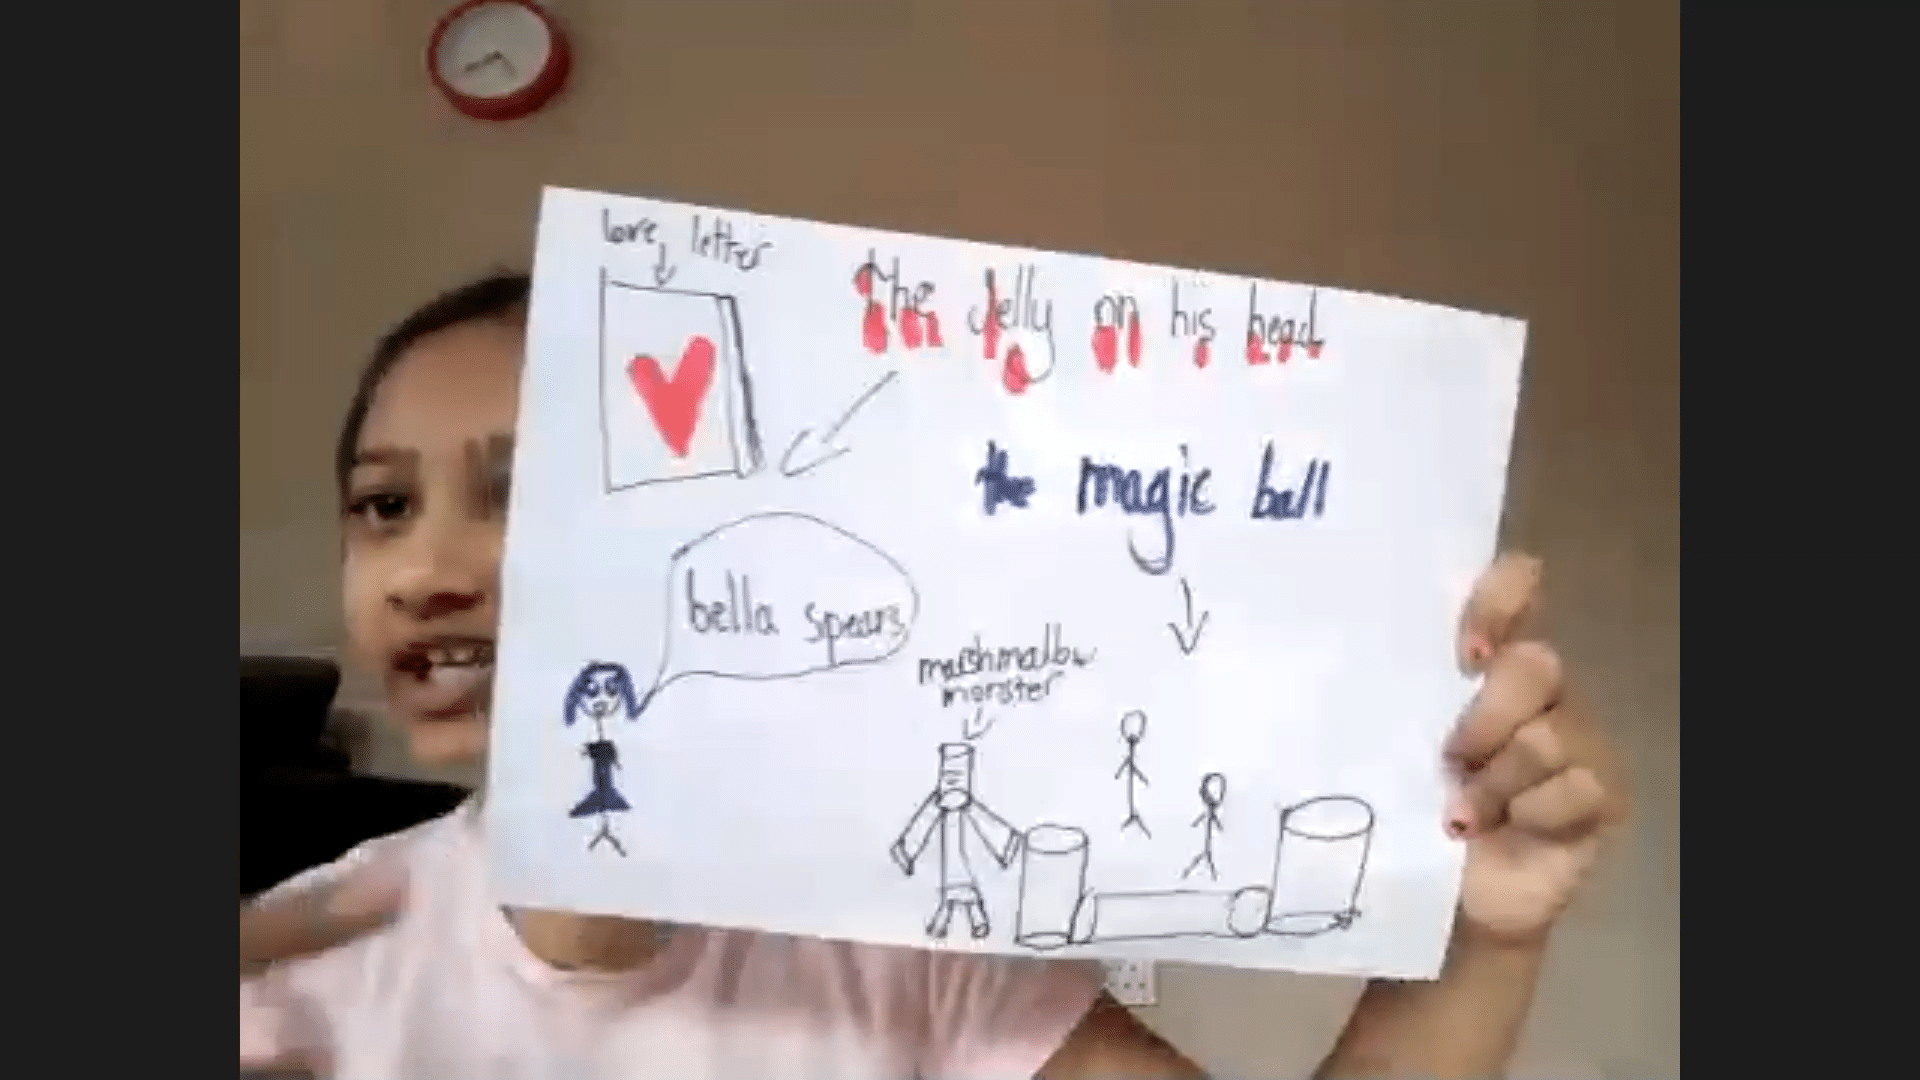 love letter
The Jelly on his head
the magic ball
bella spears
marshmallow
monster